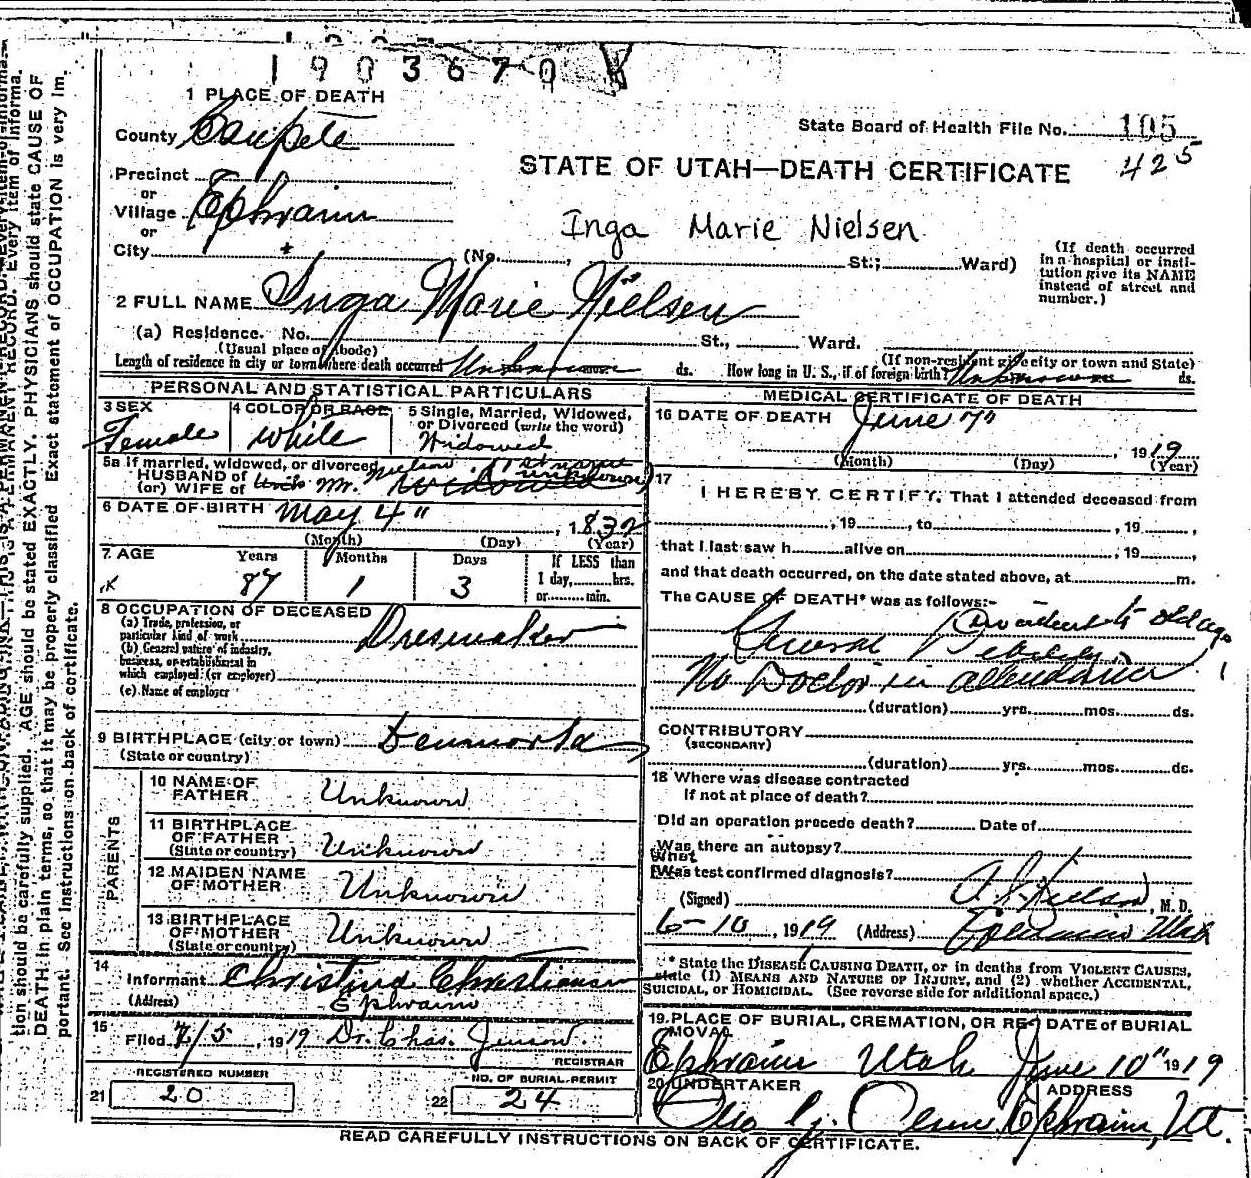 1903670
1 PLACE OF DEATH
County Sanpete
State Board of Health File No. 105
425
STATE OF UTAH—DEATH CERTIFICATE
Precinct
or
Village Ephraim
or
City
Inga Marie Nielsen
(No. , St.; Ward)
(If death occurred
in a hospital or insti-
tution give its NAME
instead of street and
number.)
2 FULL NAME Inga Marie Nielsen
(a) Residence. No. St., Ward.
(Usual place of abode)
(If non-resident give city or town and State)
Length of residence in city or town where death occurred Unknown ds. How long in U. S., if of foreign birth? Unknown ds.
PERSONAL AND STATISTICAL PARTICULARS
3 SEX
Female
4 COLOR OR RACE
White
5 Single, Married, Widowed,
or Divorced (write the word)
Widowed
5a If married, widowed, or divorced
HUSBAND of
(or) WIFE of Mr. Nielson (1st name unknown)
6 DATE OF BIRTH May 4" , 1832
(Month) (Day) (Year)
7. AGE
Years Months Days
87 1 3
If LESS than
1 day, hrs.
or min.
8 OCCUPATION OF DECEASED
(a) Trade, profession, or
particular kind of work Dresmaker
(b) General nature of industry,
business, or establishment in
which employed (or employer)
(c) Name of employer
9 BIRTHPLACE (city or town) Denmark
(State or country)
PARENTS
10 NAME OF
FATHER Unknown
11 BIRTHPLACE
OF FATHER
(State or country) Unknown
12 MAIDEN NAME
OF MOTHER Unknown
13 BIRTHPLACE
OF MOTHER
(State or country) Unknown
14
Informant Christina Christiansen
(Address) Ephraim
15
Filed 7/5, 1919 Dr. Chas. Jenson.
REGISTRAR
REGISTERED NUMBER
21 20
NO. OF BURIAL PERMIT
22 24
MEDICAL CERTIFICATE OF DEATH
16 DATE OF DEATH June 7" , 1919
(Month) (Day) (Year)
17
I HEREBY CERTIFY, That I attended deceased from
, 19 , to , 19 ,
that I last saw h alive on , 19 ,
and that death occurred, on the date stated above, at m.
The CAUSE OF DEATH* was as follows:-
General Debility, (Incident to old age)
No Doctor in attendance
(duration) yrs. mos. ds.
CONTRIBUTORY
(SECONDARY)
(duration) yrs. mos. ds.
18 Where was disease contracted
If not at place of death?
Did an operation precede death? Date of
Was there an autopsy?
What
Was test confirmed diagnosis?
(Signed) , M. D.
6-10, 1919 (Address) Ephraim Utah
*State the DISEASE CAUSING DEATH, or in deaths from VIOLENT CAUSES,
state (1) MEANS AND NATURE OF INJURY, and (2) whether ACCIDENTAL,
SUICIDAL, or HOMICIDAL. (See reverse side for additional space.)
19. PLACE OF BURIAL, CREMATION, OR RE-
MOVAL
Ephraim Utah
DATE of BURIAL
June 10" 1919
20 UNDERTAKER
ADDRESS
Ephraim, Ut.
READ CAREFULLY INSTRUCTIONS ON BACK OF CERTIFICATE.
tion should be carefully supplied. AGE should be stated EXACTLY. PHYSICIANS should state CAUSE OF
DEATH in plain terms, so that it may be properly classified. Exact statement of OCCUPATION is very im-
portant. See instructions on back of certificate.